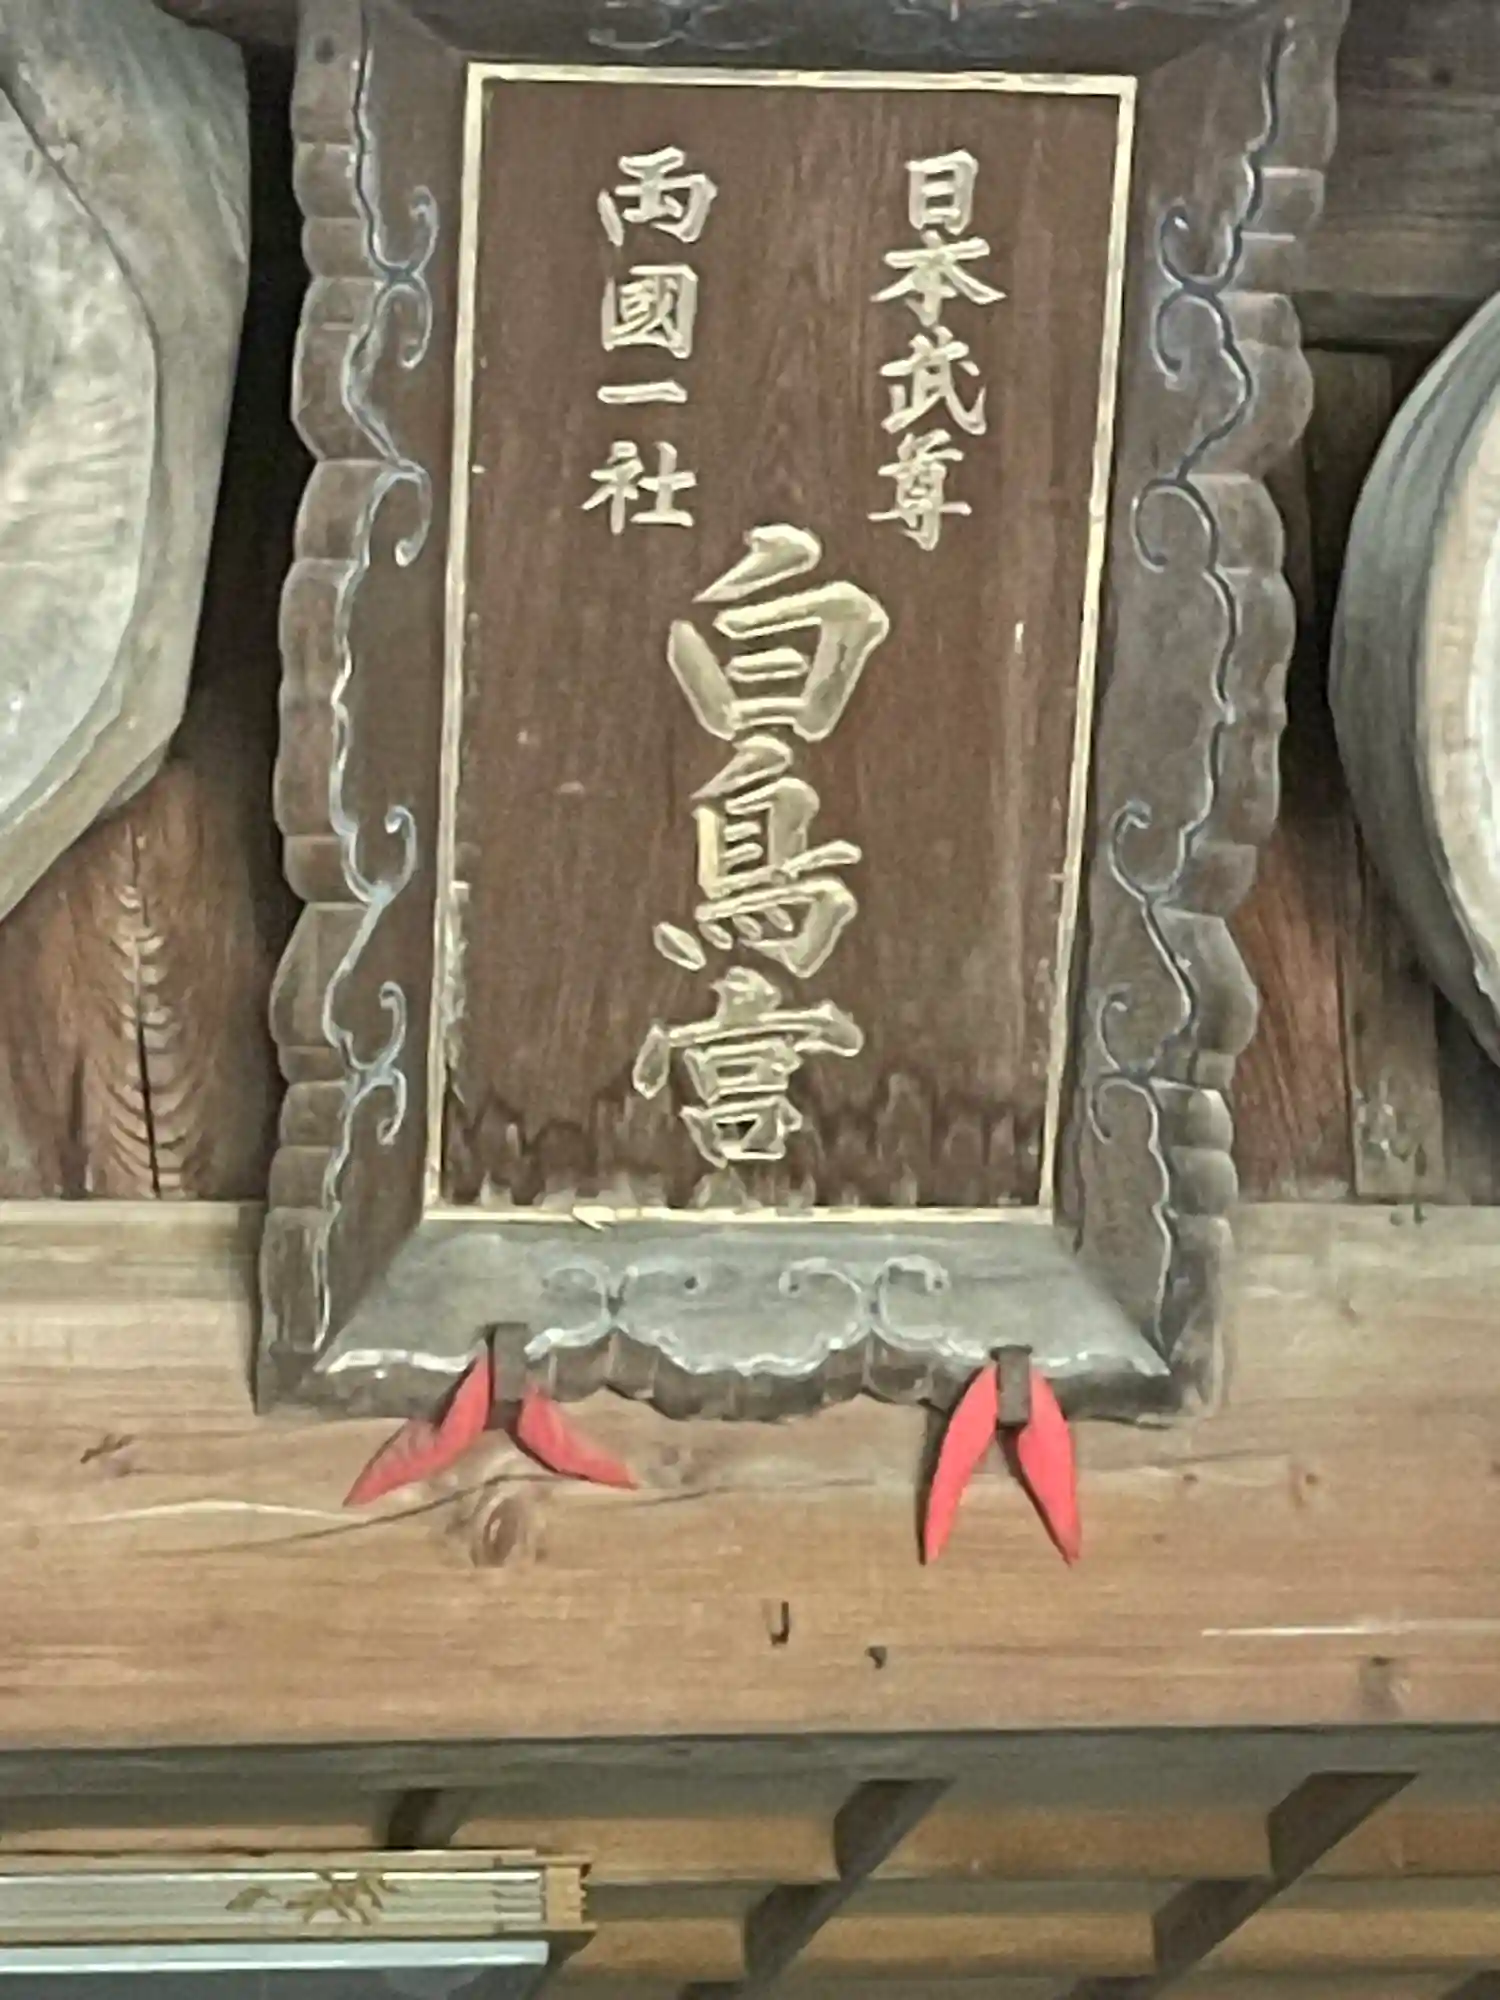 日本武尊
両國一社
白鳥宮